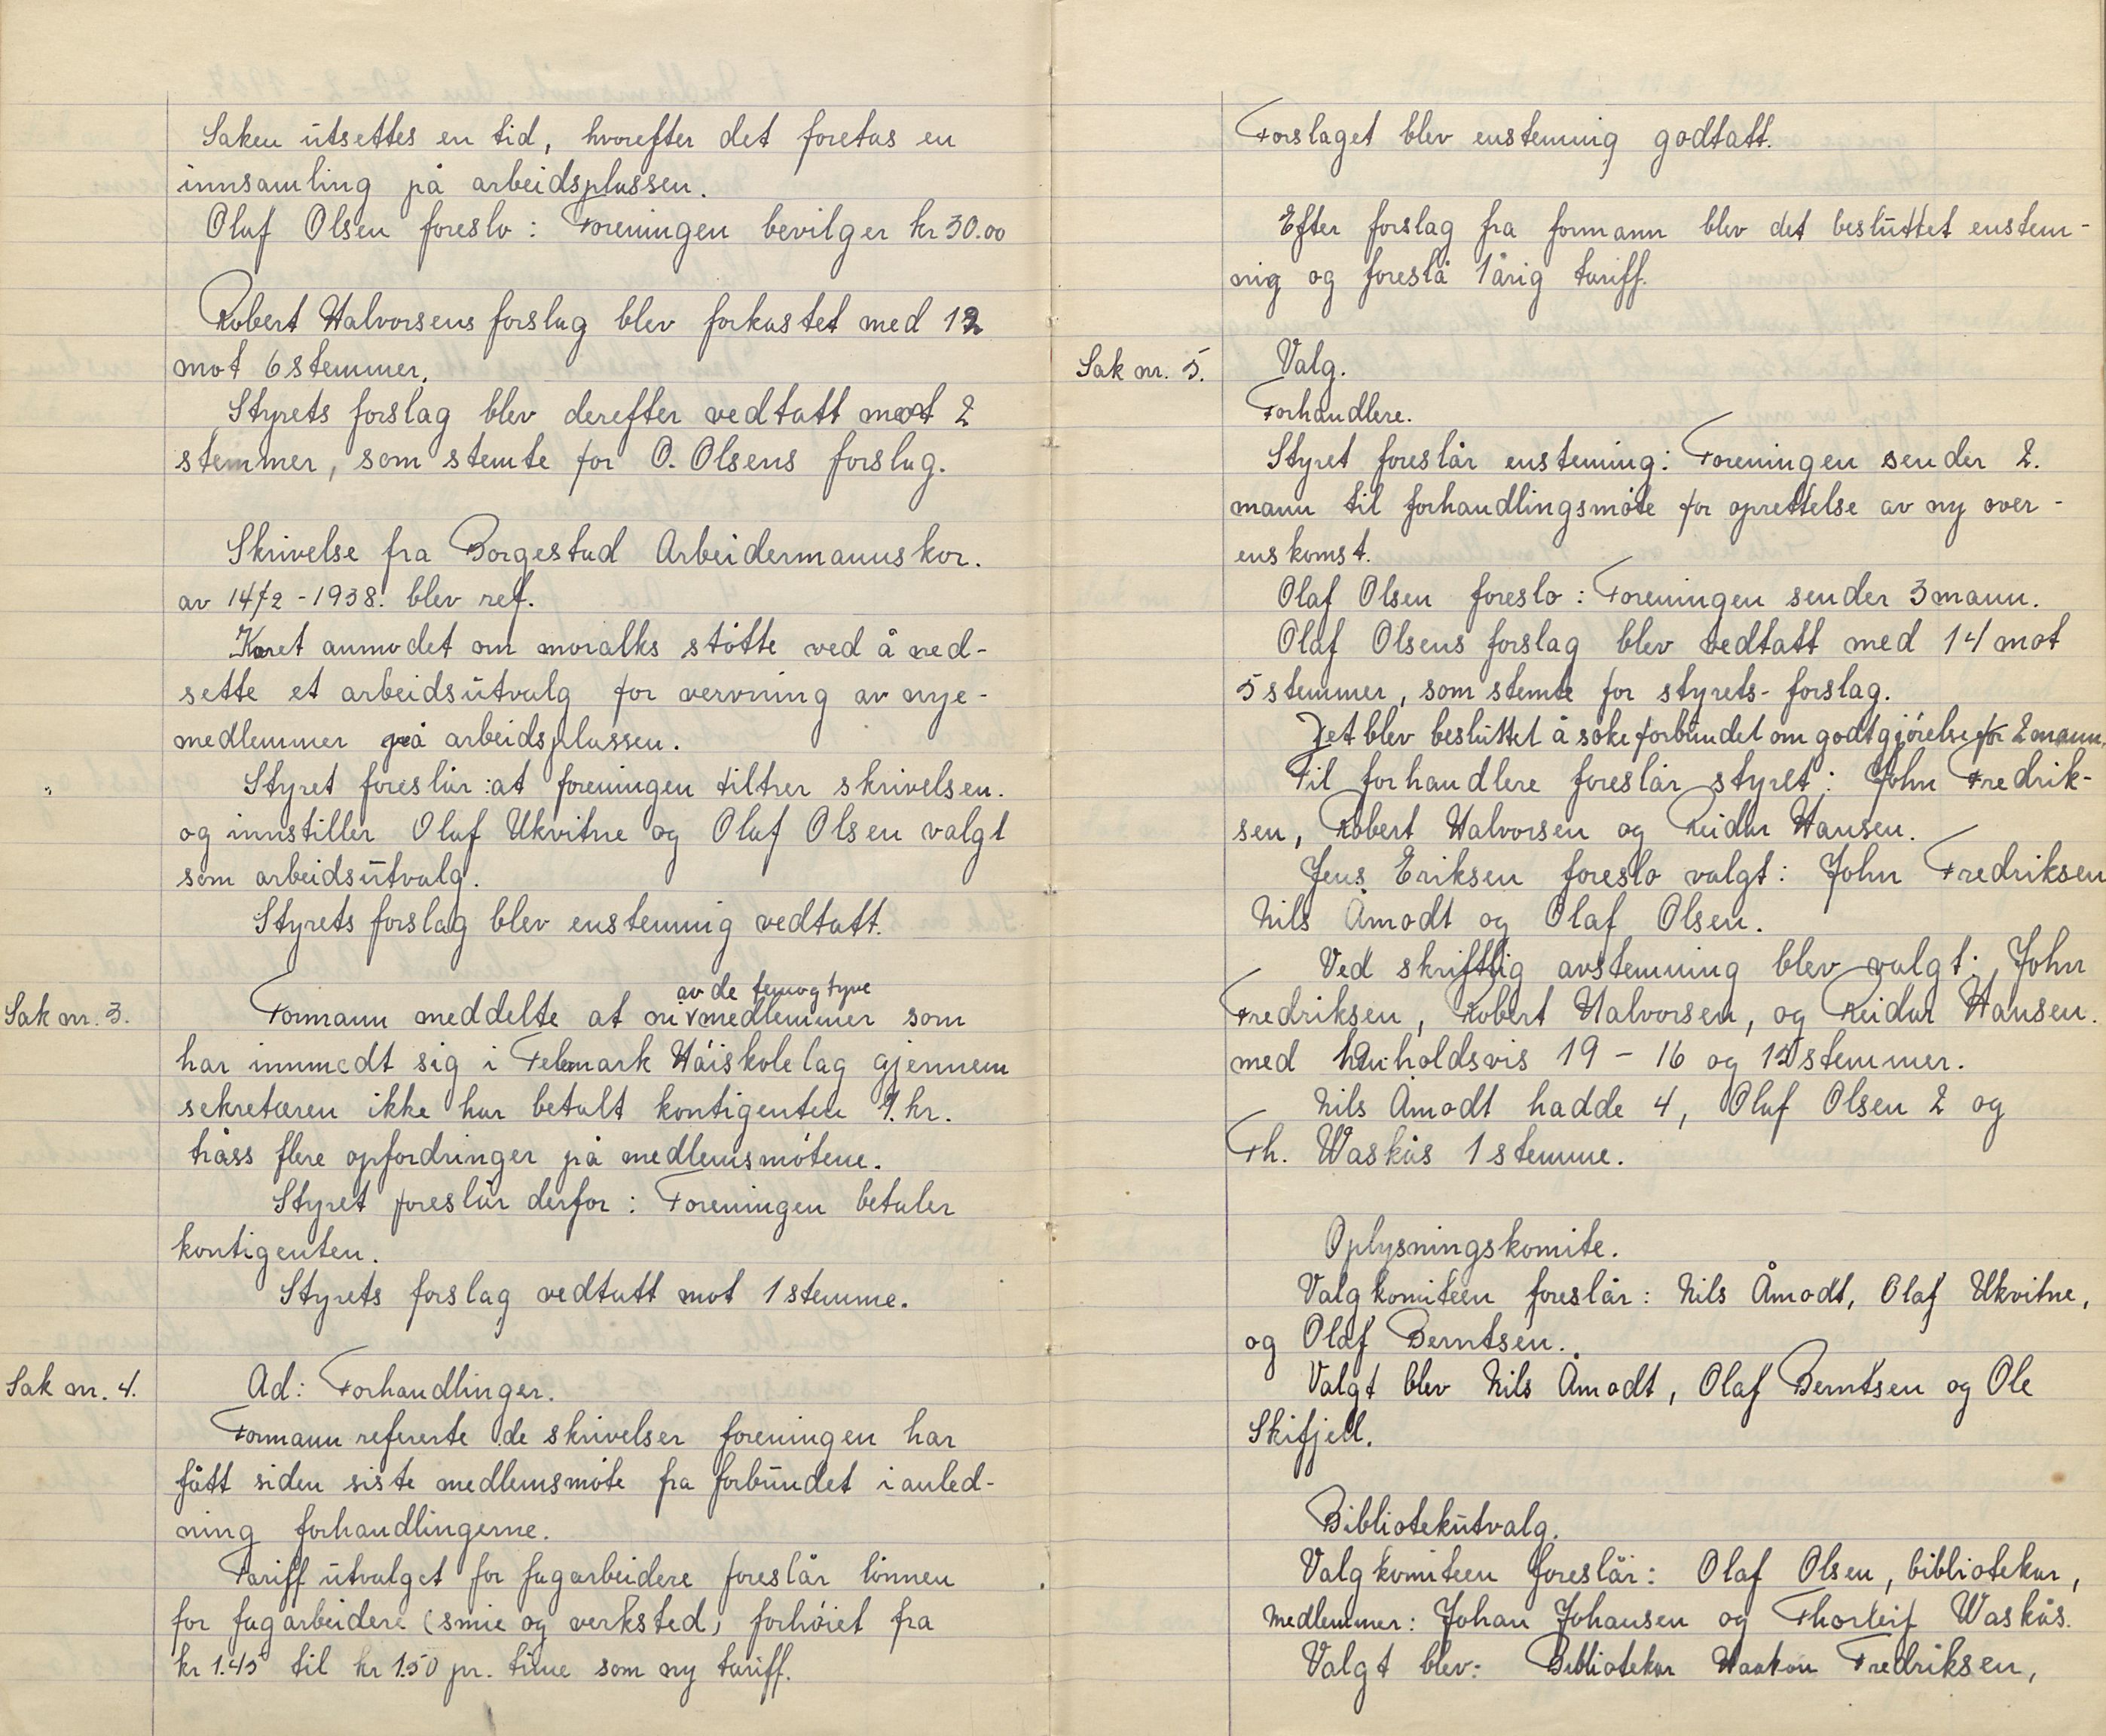 Saken utsettes en tid, hvorefter det foretas en
innsamling på arbeidsplassen.
Olaf Olsen foreslo: Foreningen bevilger kr 30.00
Robert Halvorsens forslag blev forkastet med 12
mot 6 stemmer.
Styrets forslag blev derefter vedtatt mot 2
stemmer, som stemte for O. Olsens forslag.
Skrivelse fra Borgestad Arbeidermannskor.
av 14/2-1938. blev ref.
Koret anmodet om moralks støtte ved å ned-
sette et arbeidsutvalg for vervning av nye-
medlemmer på arbeidsplassen.
Styret foreslår: at foreningen tiltrer skrivelsen.
og innstiller Olaf Ukvitne og Olaf Olsen valgt
som arbeidsutvalg.
Styrets forslag blev enstemmig vedtatt.
av de femogtyve
Sak nr. 3. Formann meddelte at ni v medlemmer som
har innmedt sig i Telemark Høiskolelag gjennem
sekretæren ikke har betalt kontigenten 1. kr.
tråss flere opfordringer på medlemsmøtene.
Styret foreslår derfor: Foreningen betaler
kontigenten.
Styrets forslag vedtatt mot 1 stemme.
Sak nr. 4. Ad: Forhandlinger.
Formann refererte de skrivelser foreningen har
fått siden siste medlemsmøte fra forbundet i anled-
ning forhandlingerne.
Tariff utvalget for fagarbeidere foreslår lønnen
for fagarbeidere (smie og verksted) forhøiet fra
kr 1.45 til kr 1.50 pr. time som ny tariff.
Forslaget blev enstemmig godtatt.
Efter forslag fra formann blev det besluttet enstem-
mig og foreslå 1årig tariff.
Sak nr. 5. Valg.
Forhandlere.
Styret foreslår enstemmig: Foreningen sender 2.
mann til forhandlingsmøte for oprettelse av ny over-
enskomst.
Olaf Olsen foreslo: Foreningen sender 3 mann.
Olaf Olsens forslag blev vedtatt med 14 mot
5 stemmer, som stemte for styrets- forslag.
Det blev besluttet å søke forbundet om godtgjørelse for 2 mann.
Til forhandlere foreslår styret: John Fredrik-
sen, Robert Halvorsen og Reidar Hansen.
Jens Eriksen foreslo valgt: John Fredriksen
Nils Åmodt og Olaf Olsen.
Ved skriftlig avstemning blev valgt: John
Fredriksen, Robert Halvorsen, og Reidar Hansen.
med henholdsvis 19 - 16 og stemmer.
Nils Åmodt hadde 4, Olaf Olsen 2 og
Th. Waskås 1 stemme.
Oplysningskomite.
Valgkomiteen foreslår: Nils Åmodt, Olaf Ukvitne,
og Olaf Berntsen.
Valgt blev Nils Åmodt, Olaf Berntsen og Ole
Skifjell.
Bibliotekutvalg.
Valgkomiteen foreslår: Olaf Olsen, bibliotekar,
medlemmer: Johan Johansen og Thorleif Waskås.
Valgt blev: Bibliotekar Haakon Fredriksen,